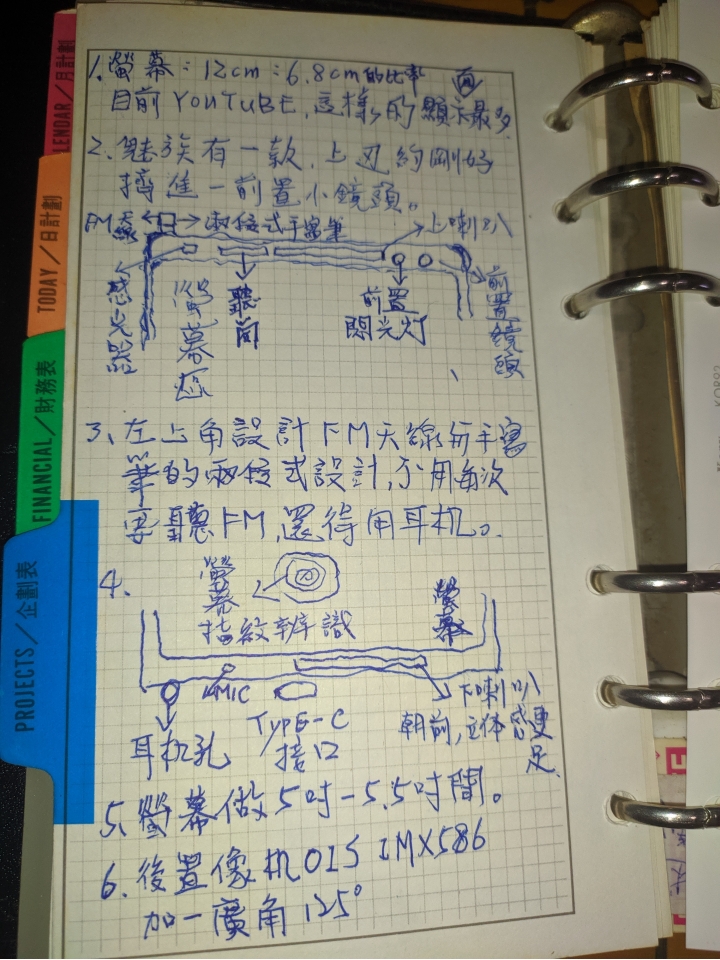 1、螢幕：12cm：6.8cm的比率
目前YOUTUBE，這樣的顯示最多
面
2、魅族有一款，上边約剛好
擠進一前置小鏡頭。
FM天線 兩儅式手寫筆 上喇叭
感
螢幕 聽筒 前置閃光灯 前置鏡頭
3、左上角設計FM天線與手寫
筆的兩儅式設計，不用每次
要聽FM，還得用耳机。
4、螢幕 螢幕
指紋辨識
MIC 下喇叭
TypE-C 朝前，立体感更足
耳机孔 接口
5、螢幕做5吋-5.5吋間。
6、後置像机OIS IMX586
加一廣角125°
LENDAR／月計劃
TODAY／日計劃
FINANCIAL／財務表
PROJECTS／企劃表